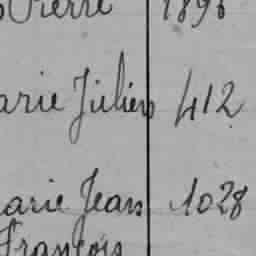 Pierre 1896
arie Julien 412
arie Jean 1028
François